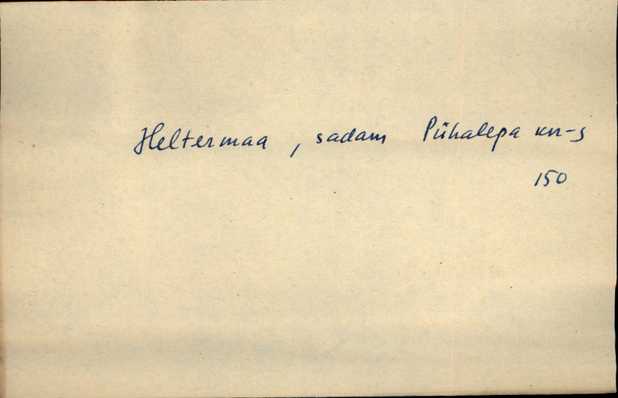 Heltermaa, sadam Pühalepa kn-s
150